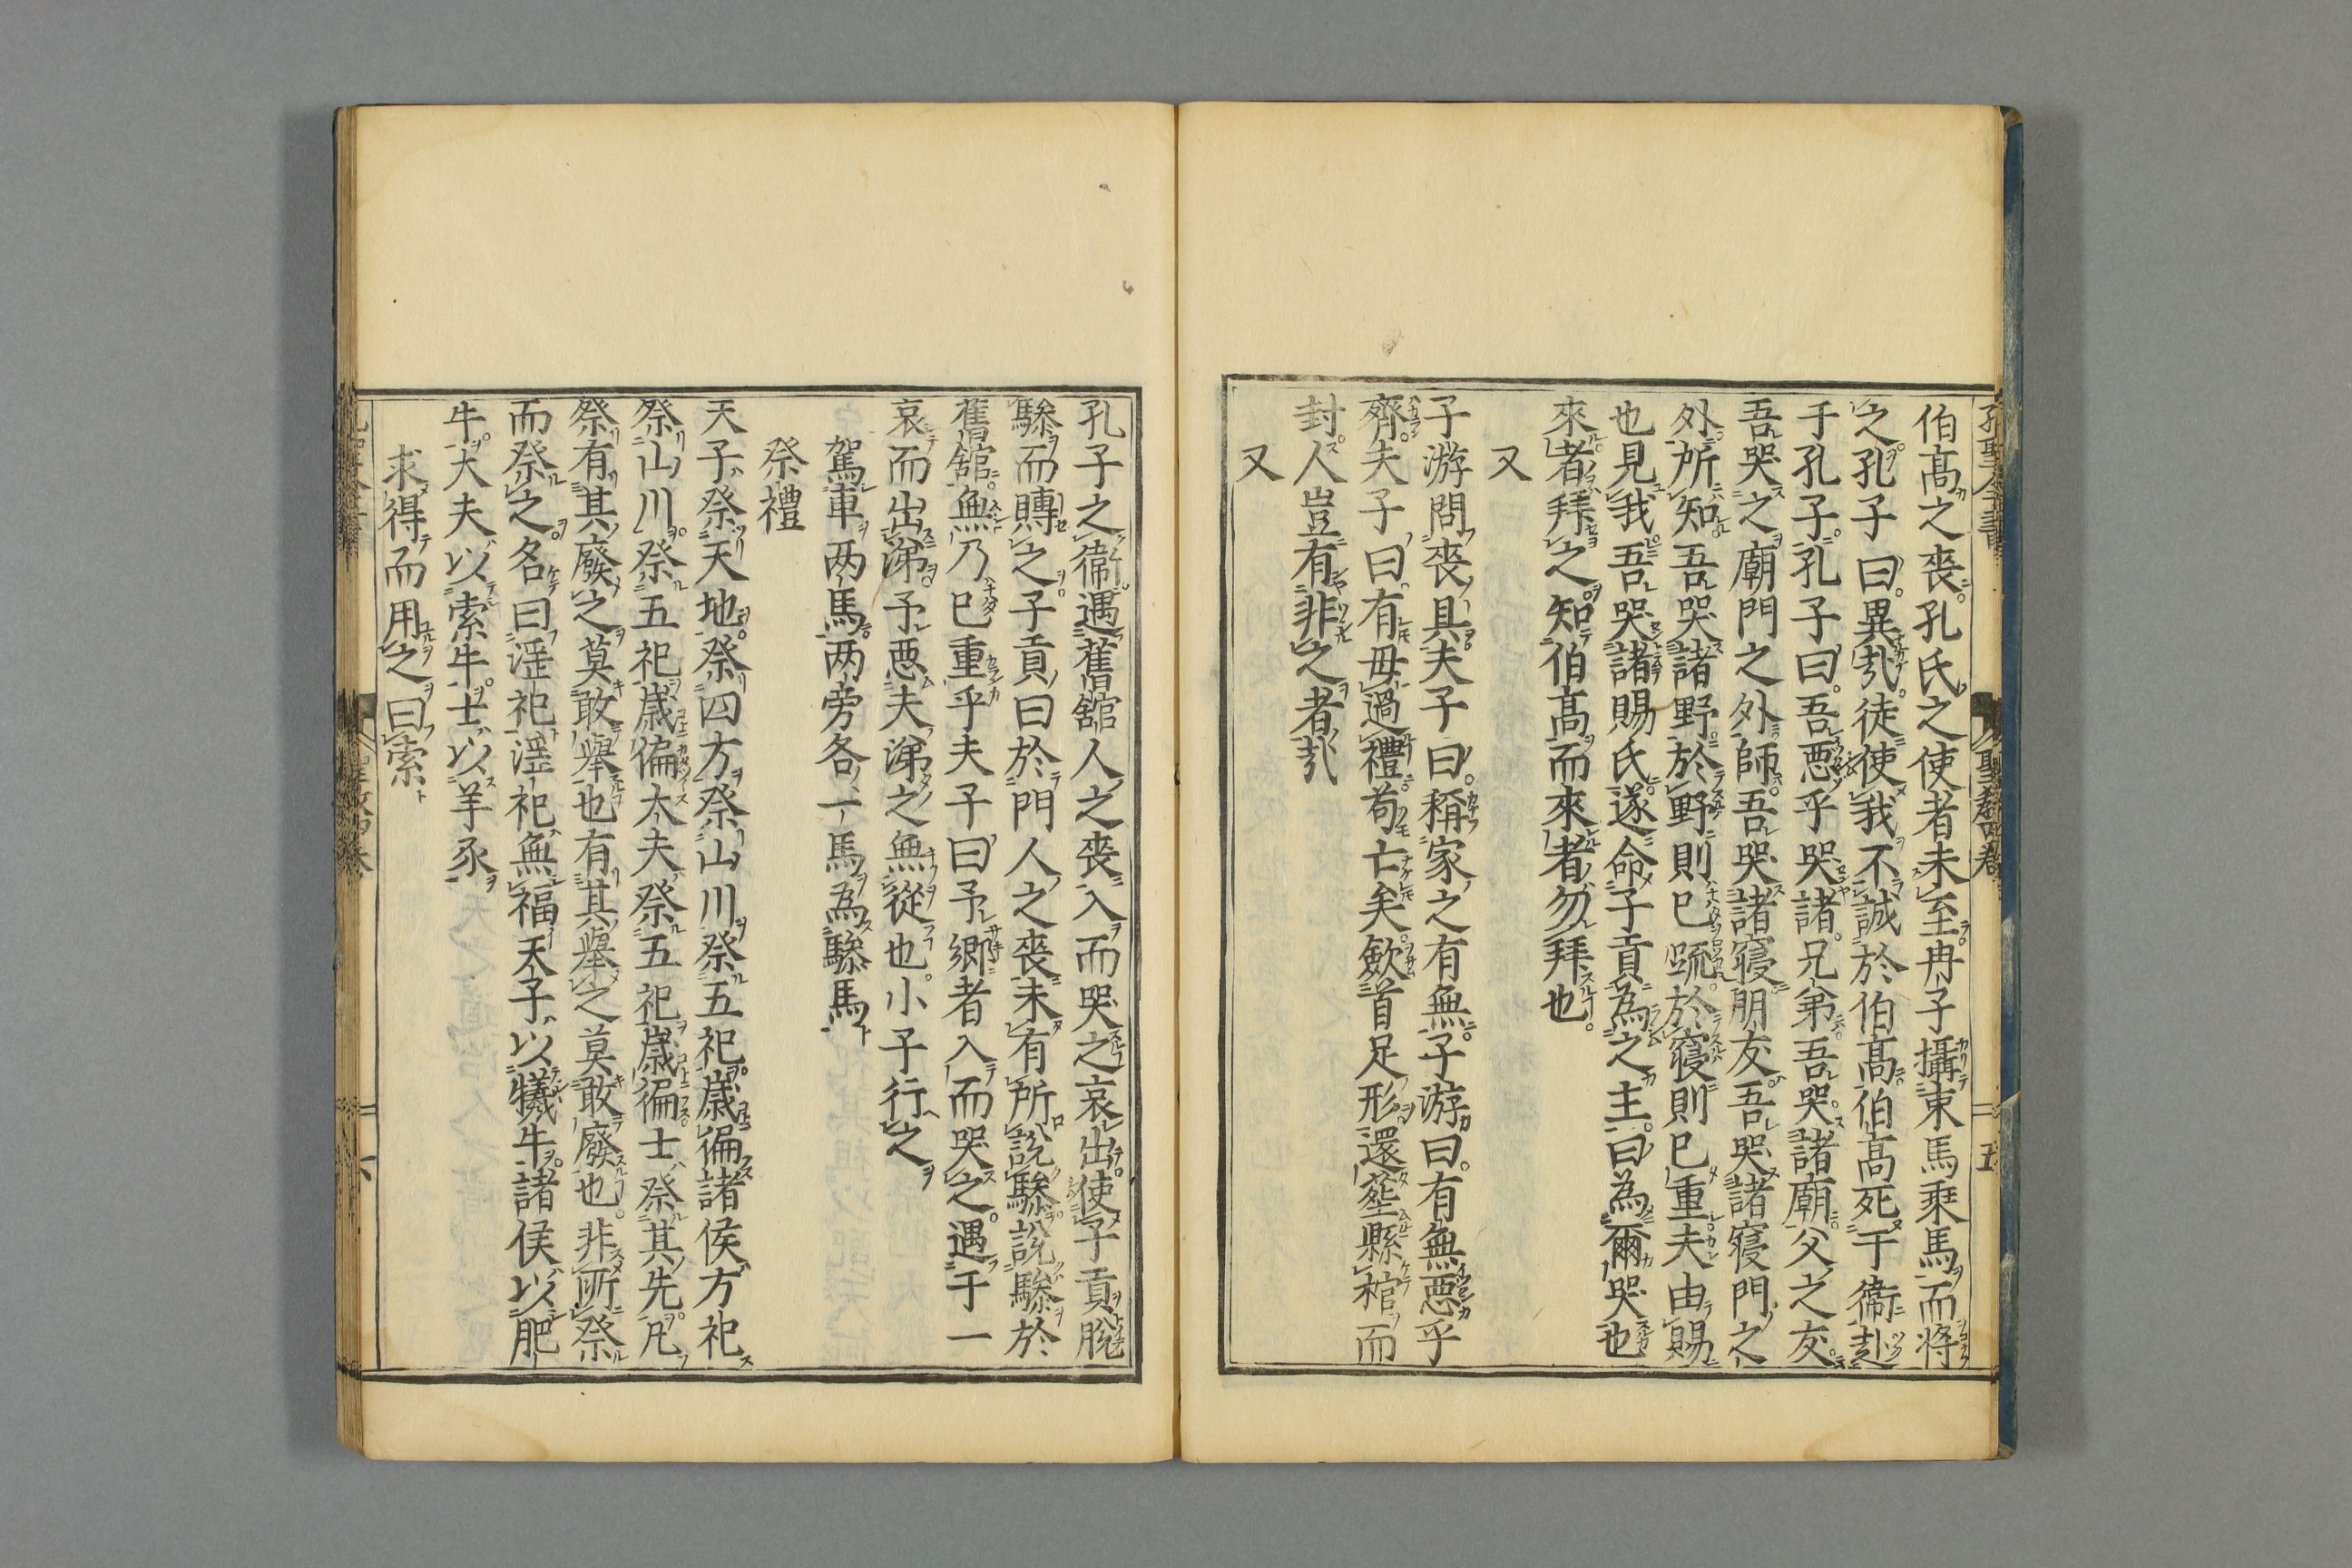 伯髙之喪孔氏之使者未至冉子攝束馬乗馬而将
之孔子曰異哉徒使我不誠於伯髙伯髙死于衛赴
于孔子孔子曰吾惡乎哭諸兄弟吾哭諸廟父之友
吾哭之廟門之外師吾哭諸寢朋友吾哭諸寢門之
外所知吾哭諸野於野則已疏於寢則已重夫由賜
也見我吾哭諸賜氏遂命子貢為之主曰為爾哭也
來者拜之知伯髙而來者勿拜也
又
子游問喪具夫子曰稱家之有無子游曰有無惡乎
齊夫子曰有毋過禮苟亡矣斂首足形還葬縣棺而
封人豈有非之者哉
又
孔子之衛遇舊舘人之喪入而哭之哀出使子貢脫
驂而賻之子貢曰於門人之喪未有所說驂說驂於
舊舘無乃已重乎夫子曰予鄉者入而哭之遇于一
哀而出涕予惡夫涕之無從也小子行之
駕車两馬两旁各一馬為驂馬
祭禮
天子祭天地祭四方祭山川祭五祀歳徧諸侯方祀
祭山川祭五祀歳徧大夫祭五祀歳徧士祭其先凡
祭有其廢之莫敢舉也有其舉之莫敢廢也非所祭
而祭之名曰淫祀淫祀無福天子以犧牛諸侯以肥
牛大夫以索牛士以羊豕
求得而用之曰索